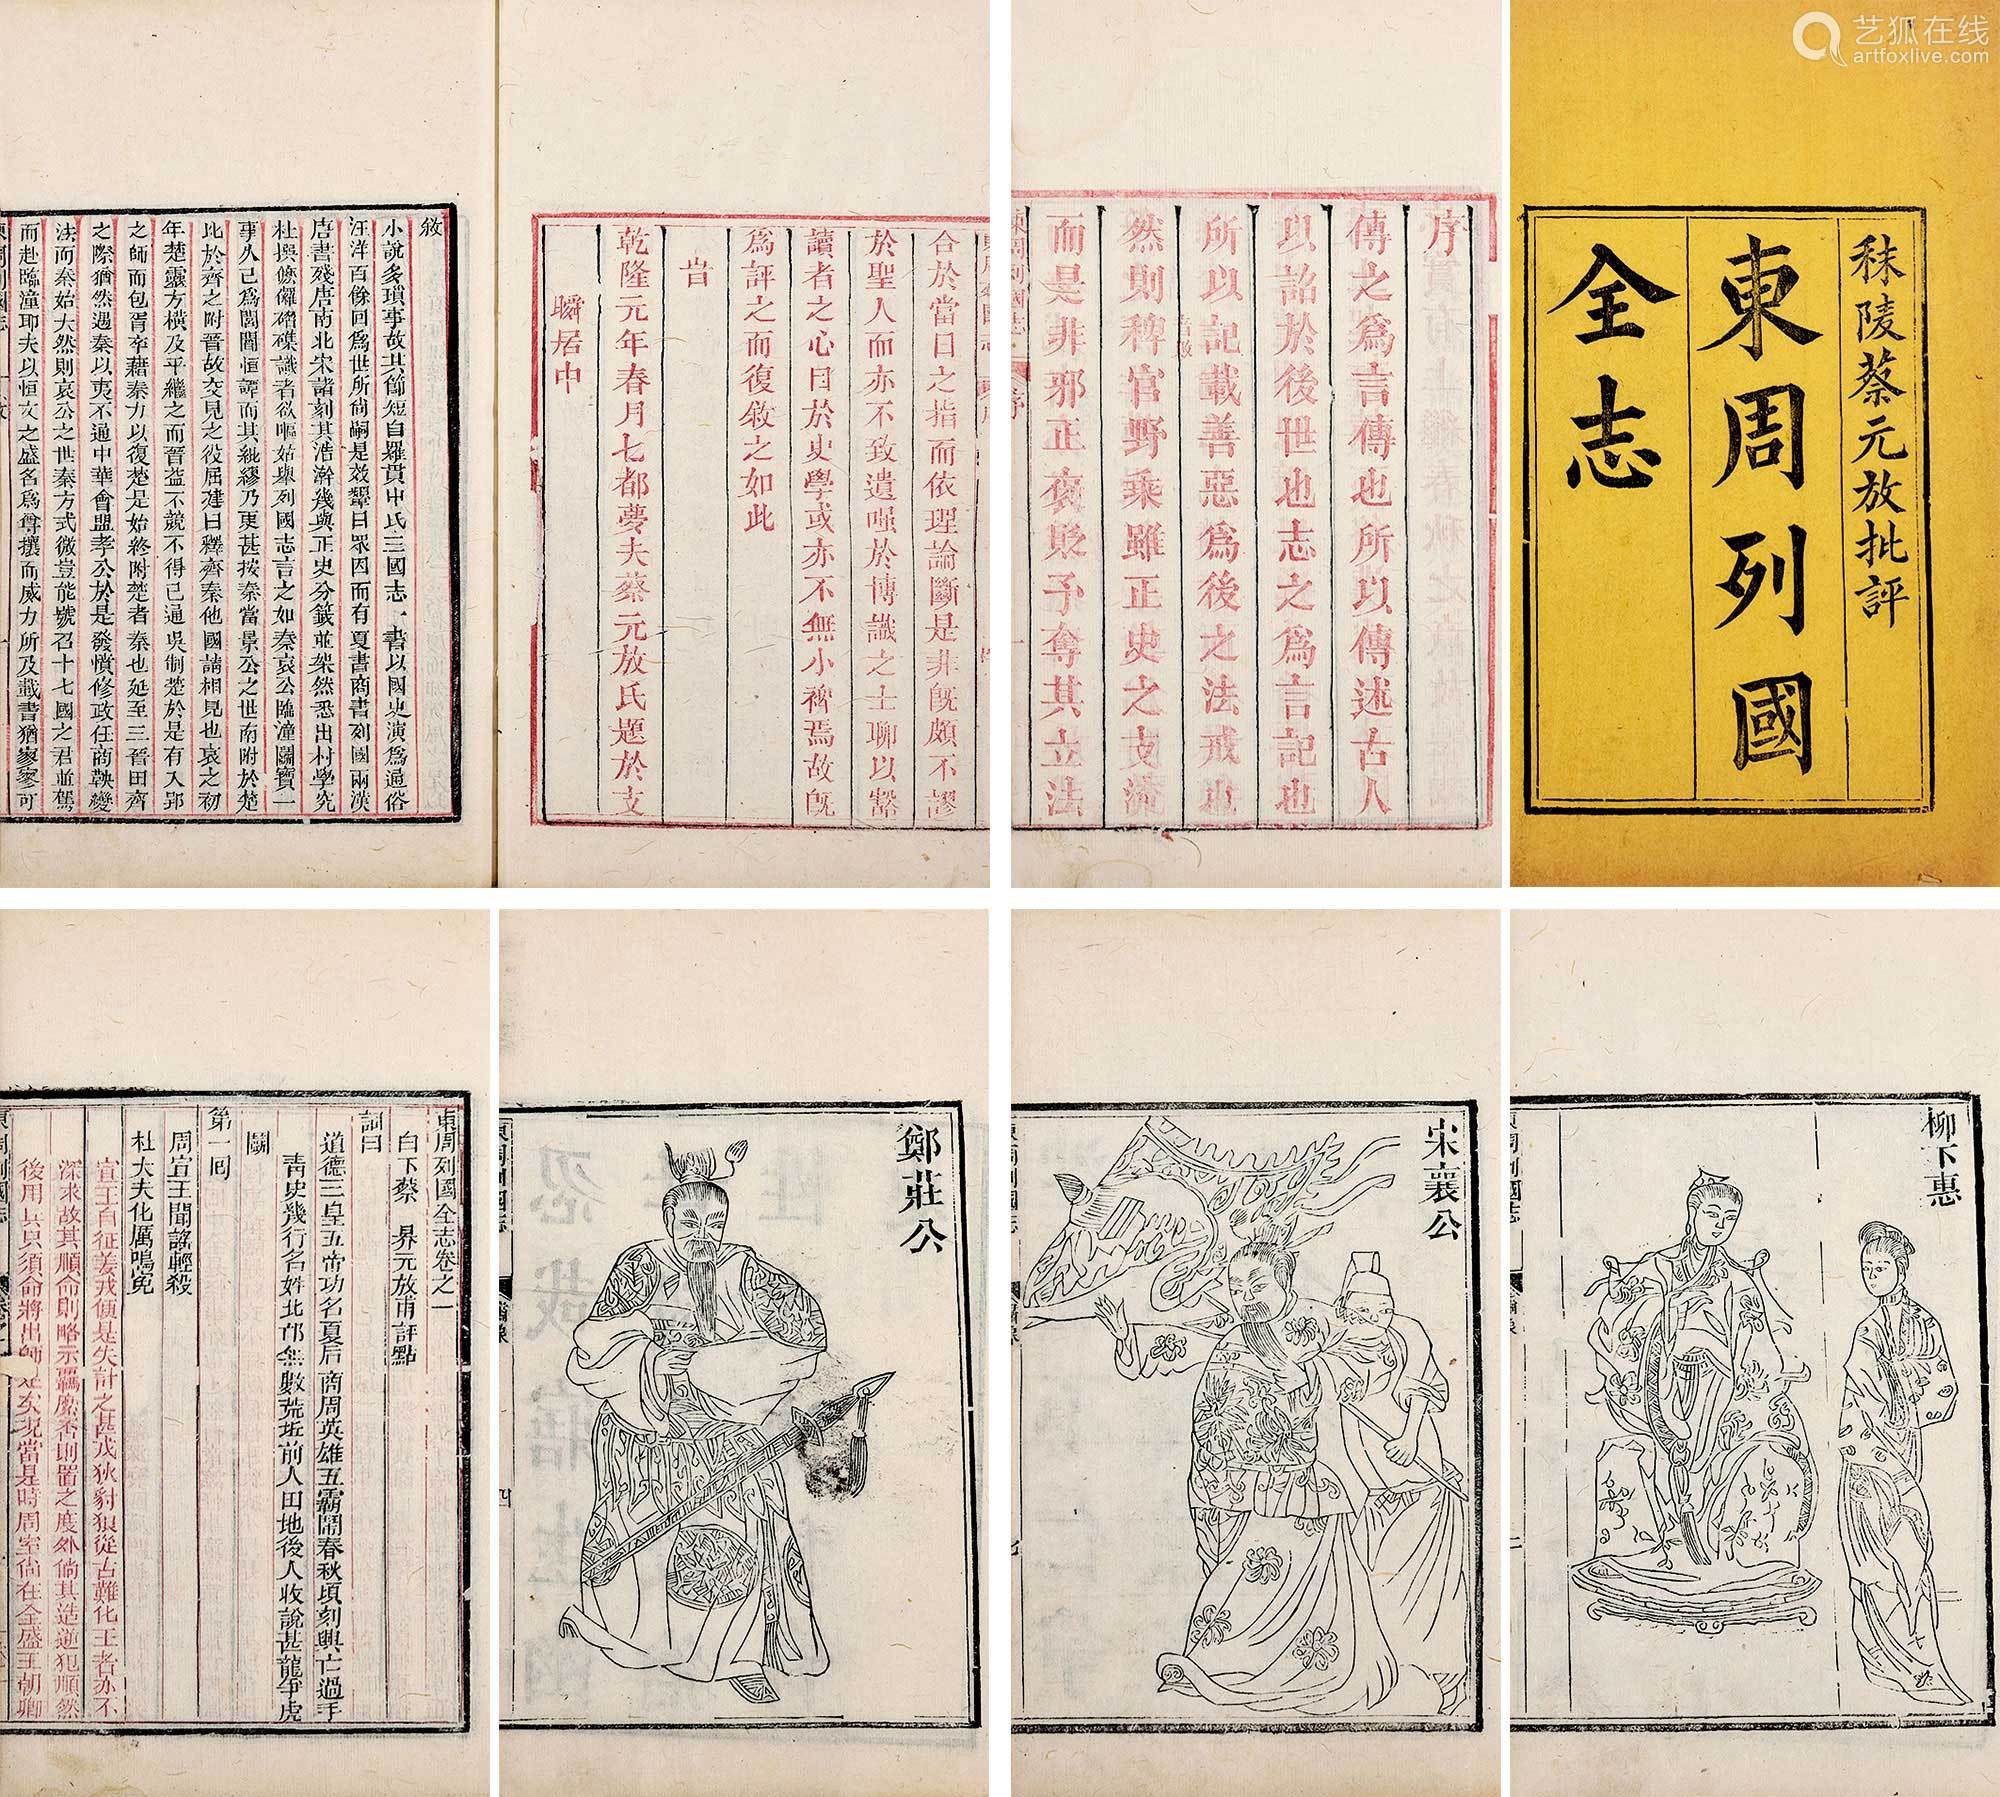 艺狐在线
artfoxlive.com
秣陵蔡元放批評
東周列國
全志
序
傳之爲言傳也所以傳述古人
以詔於後世也志之爲言記也
所以記載善惡爲後之法戒也
然則稗官野乘雖正史之支流
而是非邪正褒貶予奪其立法
合於當日之指而依理論斷是非既頗不謬
於聖人而亦不致遺嗤於博識之士聊以豁
讀者之心目於史學或亦不無小裨焉故既
爲評之而復敘之如此
旹
乾隆元年春月七都夢夫蔡元放氏題於支
瞬居中
敘
小說多瑣事故其節短自羅貫中氏三國志一書以國史演爲通俗
汪洋百餘回爲世所尚嗣是效顰日眾因而有夏書商書列國兩漢
唐書殘唐南北宋諸刻其浩瀚幾與正史分籤並架然悉出村學究
杜撰識者欲嘔姑舉列國志言之如秦哀公臨潼鬬寶一
事久已爲閭閻恒譚而其紕繆乃更甚按秦當景公之世南附於楚
比於齊之附晉故交見之役屈建曰釋齊秦他國請相見也哀之初
年楚靈方橫及平繼之而晉益不競不得已通吳制楚於是有入郢
之師而包胥卒藉秦力以復楚是始終附楚者秦也延至三晉田齊
之際猶然遇秦以夷不通中華會盟孝公於是發憤修政任商鞅變
法而秦始大然則哀公之世秦方式微豈能號召十七國之君並駕
而赴臨潼耶夫以恒文之盛名爲尊攘而威力所及載書猶寥寥可
柳下惠
宋襄公
鄭莊公
東周列國全志卷之一
白下蔡 昇元放甫評點
詞曰
道德三皇五帝功名夏后商周英雄五霸鬧春秋頃刻興亡過手
青史幾行名姓北邙無數荒坵前人田地後人收說甚龍爭虎
鬬
第一回
周宣王聞謠輕殺
杜大夫化厲鳴冤
宣王自征姜戎便是失計之甚戎狄豺狼從古難化王者亦不
深求故其順命則略示羈縻否則置之度外倘其造逆犯順然
後用兵只須命將出師 當是時周室尚在全盛王朝卿